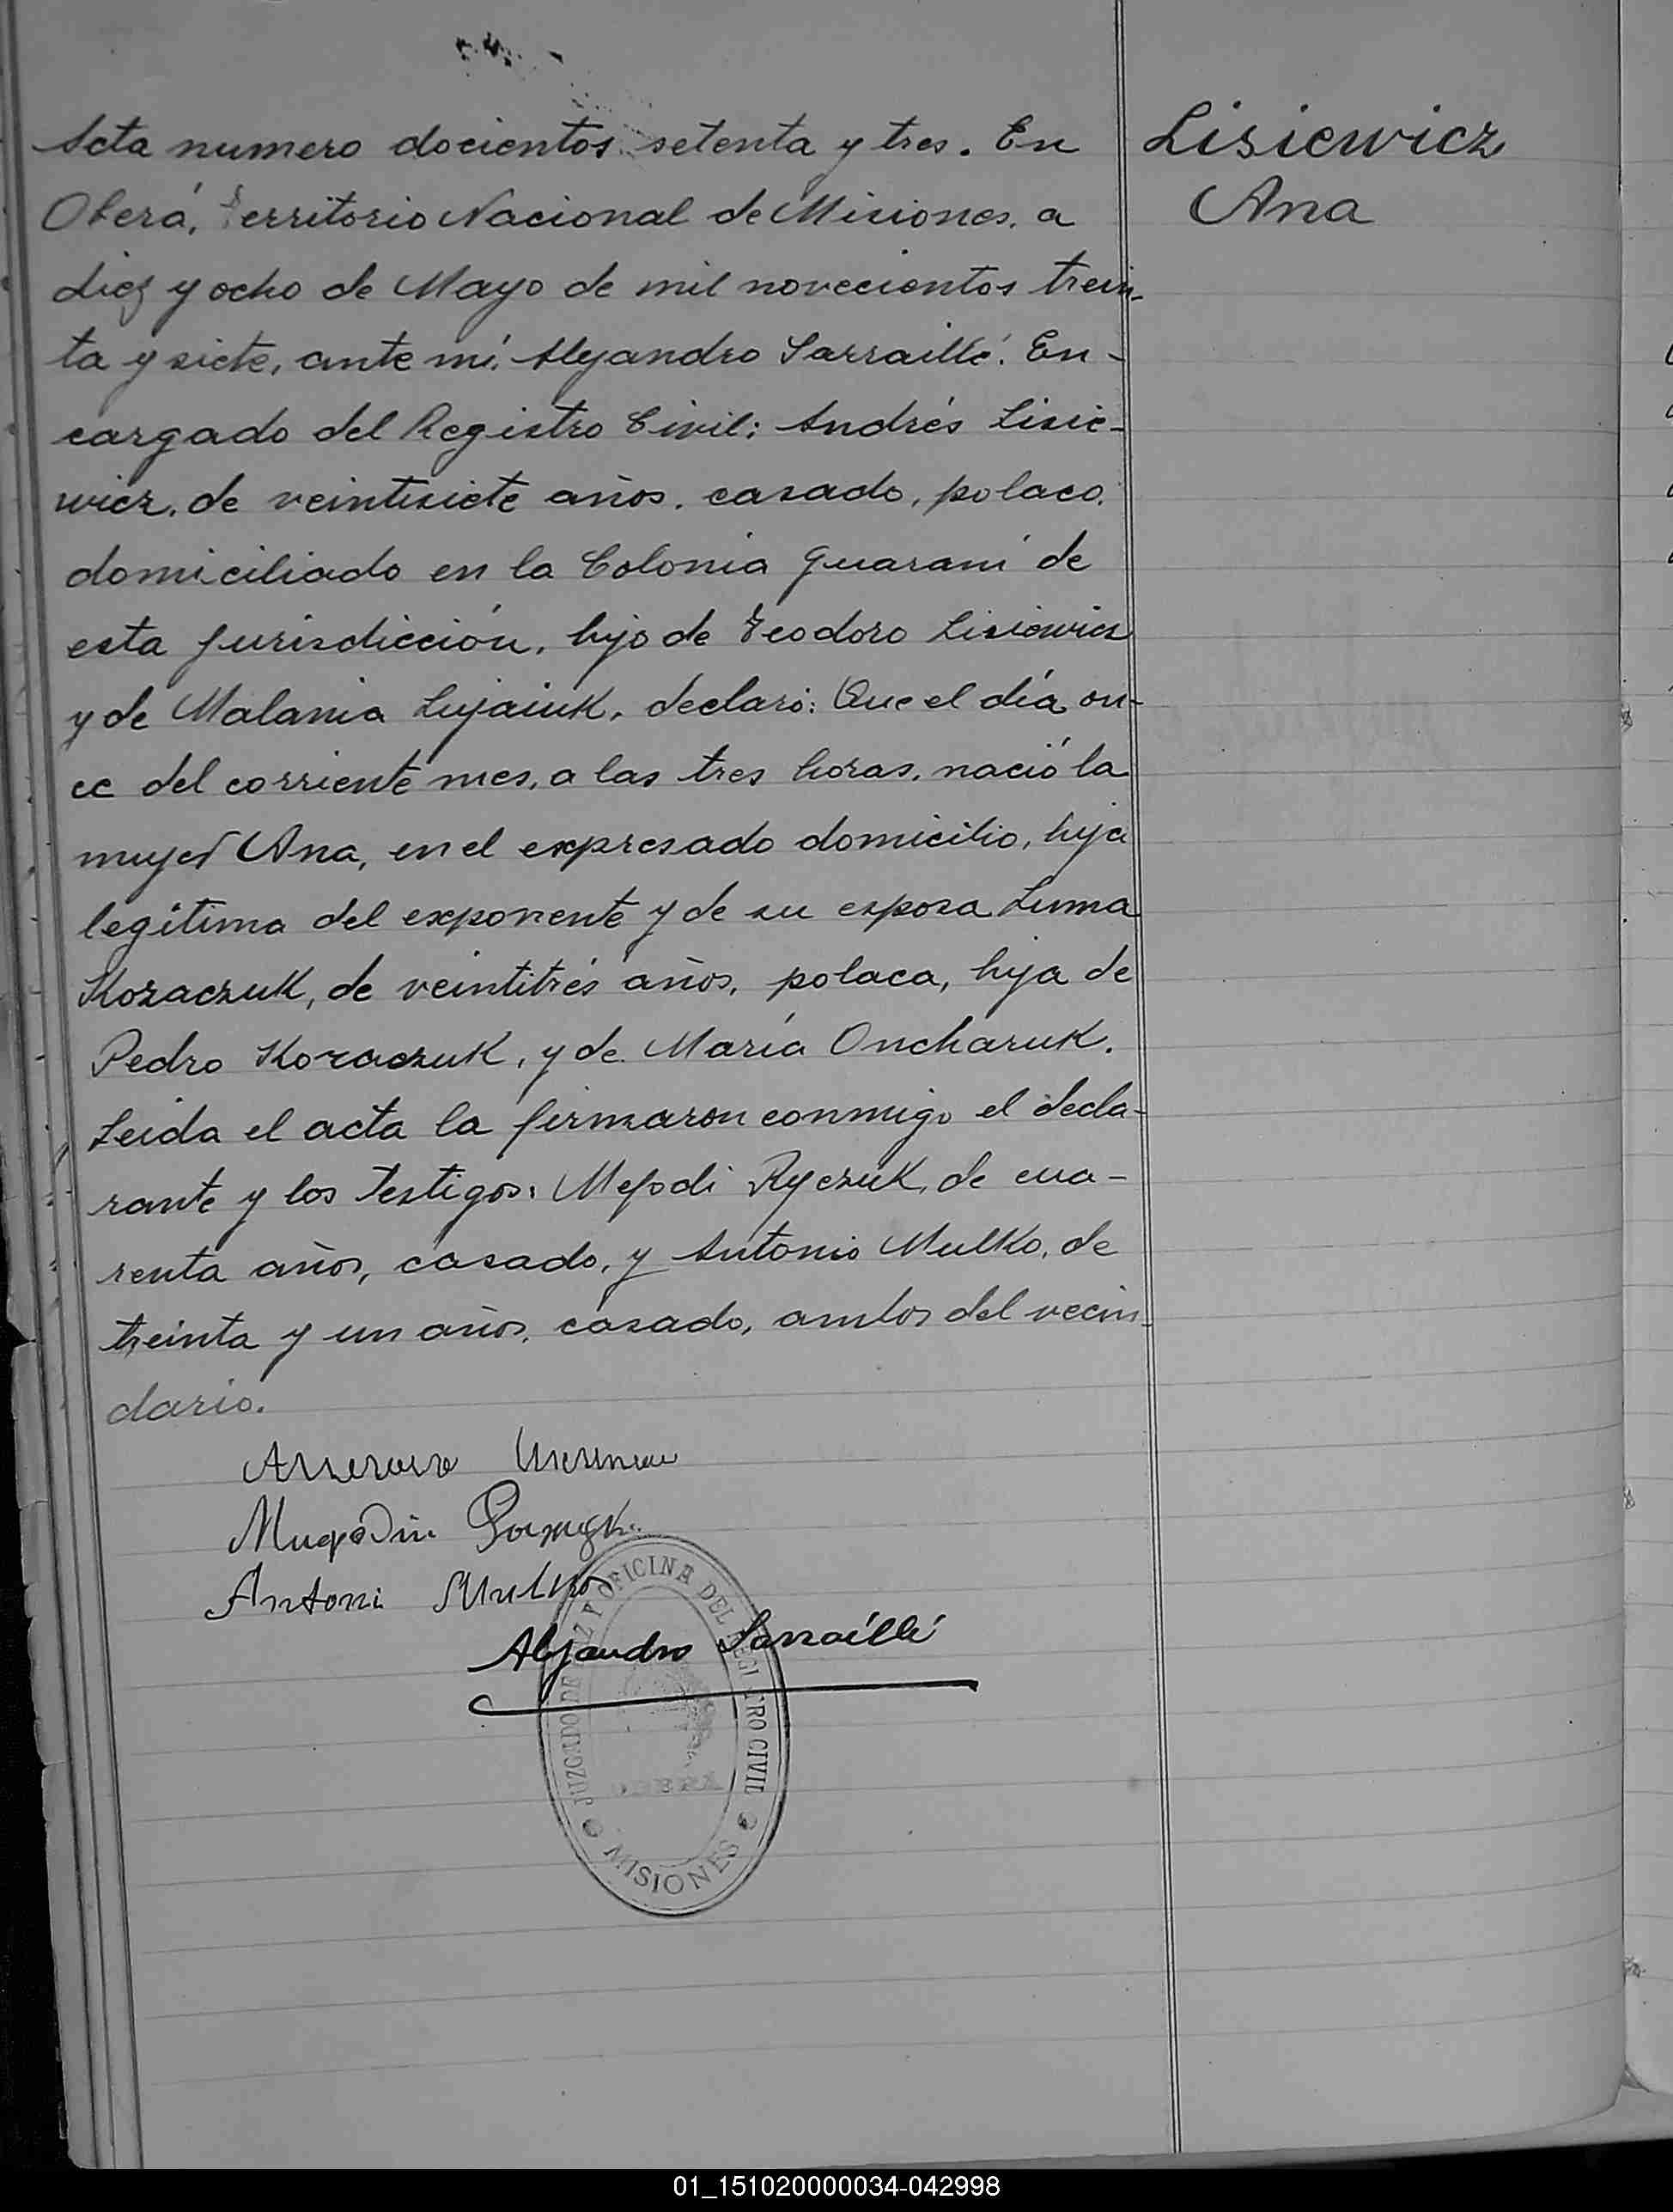 Acta numero docientos setenta y tres. En
Oberá, Territorio Nacional de Misiones, a
diez y ocho de Mayo de mil novecientos trein-
ta y siete, ante mí, Alejandro Sarraillé. En-
cargado del Registro Civil: Andrés Lisie-
wicz, de veintisiete años, casado, polaco,
domiciliado en la Colonia Guaraní de
esta jurisdicción, hijo de Teodoro Lisiewicz
y de Malania Lujaiuk, declaró: Que el día on-
ce del corriente mes, a las tres horas, nació la
mujer Ana, en el expresado domicilio, hija
legítima del exponente y de su esposa Luma
Kozaczuk, de veintitrés años, polaca, hija de
Pedro Kozaczuk, y de María Oncharuk.
Leida el acta la firmaron conmigo el decla-
rante y los testigos: Mefodi Ryczuk, de cua-
renta años, casado, y Antonio Mulko, de
treinta y un años, casado, ambos del vecin-
dario.
Antoni Mulko
Alejandro Sarraillé
JUZGADO DE PAZ Y OFICINA DEL REGISTRO CIVIL
MISIONES
Lisiewicz
Ana
01_151020000034-042998